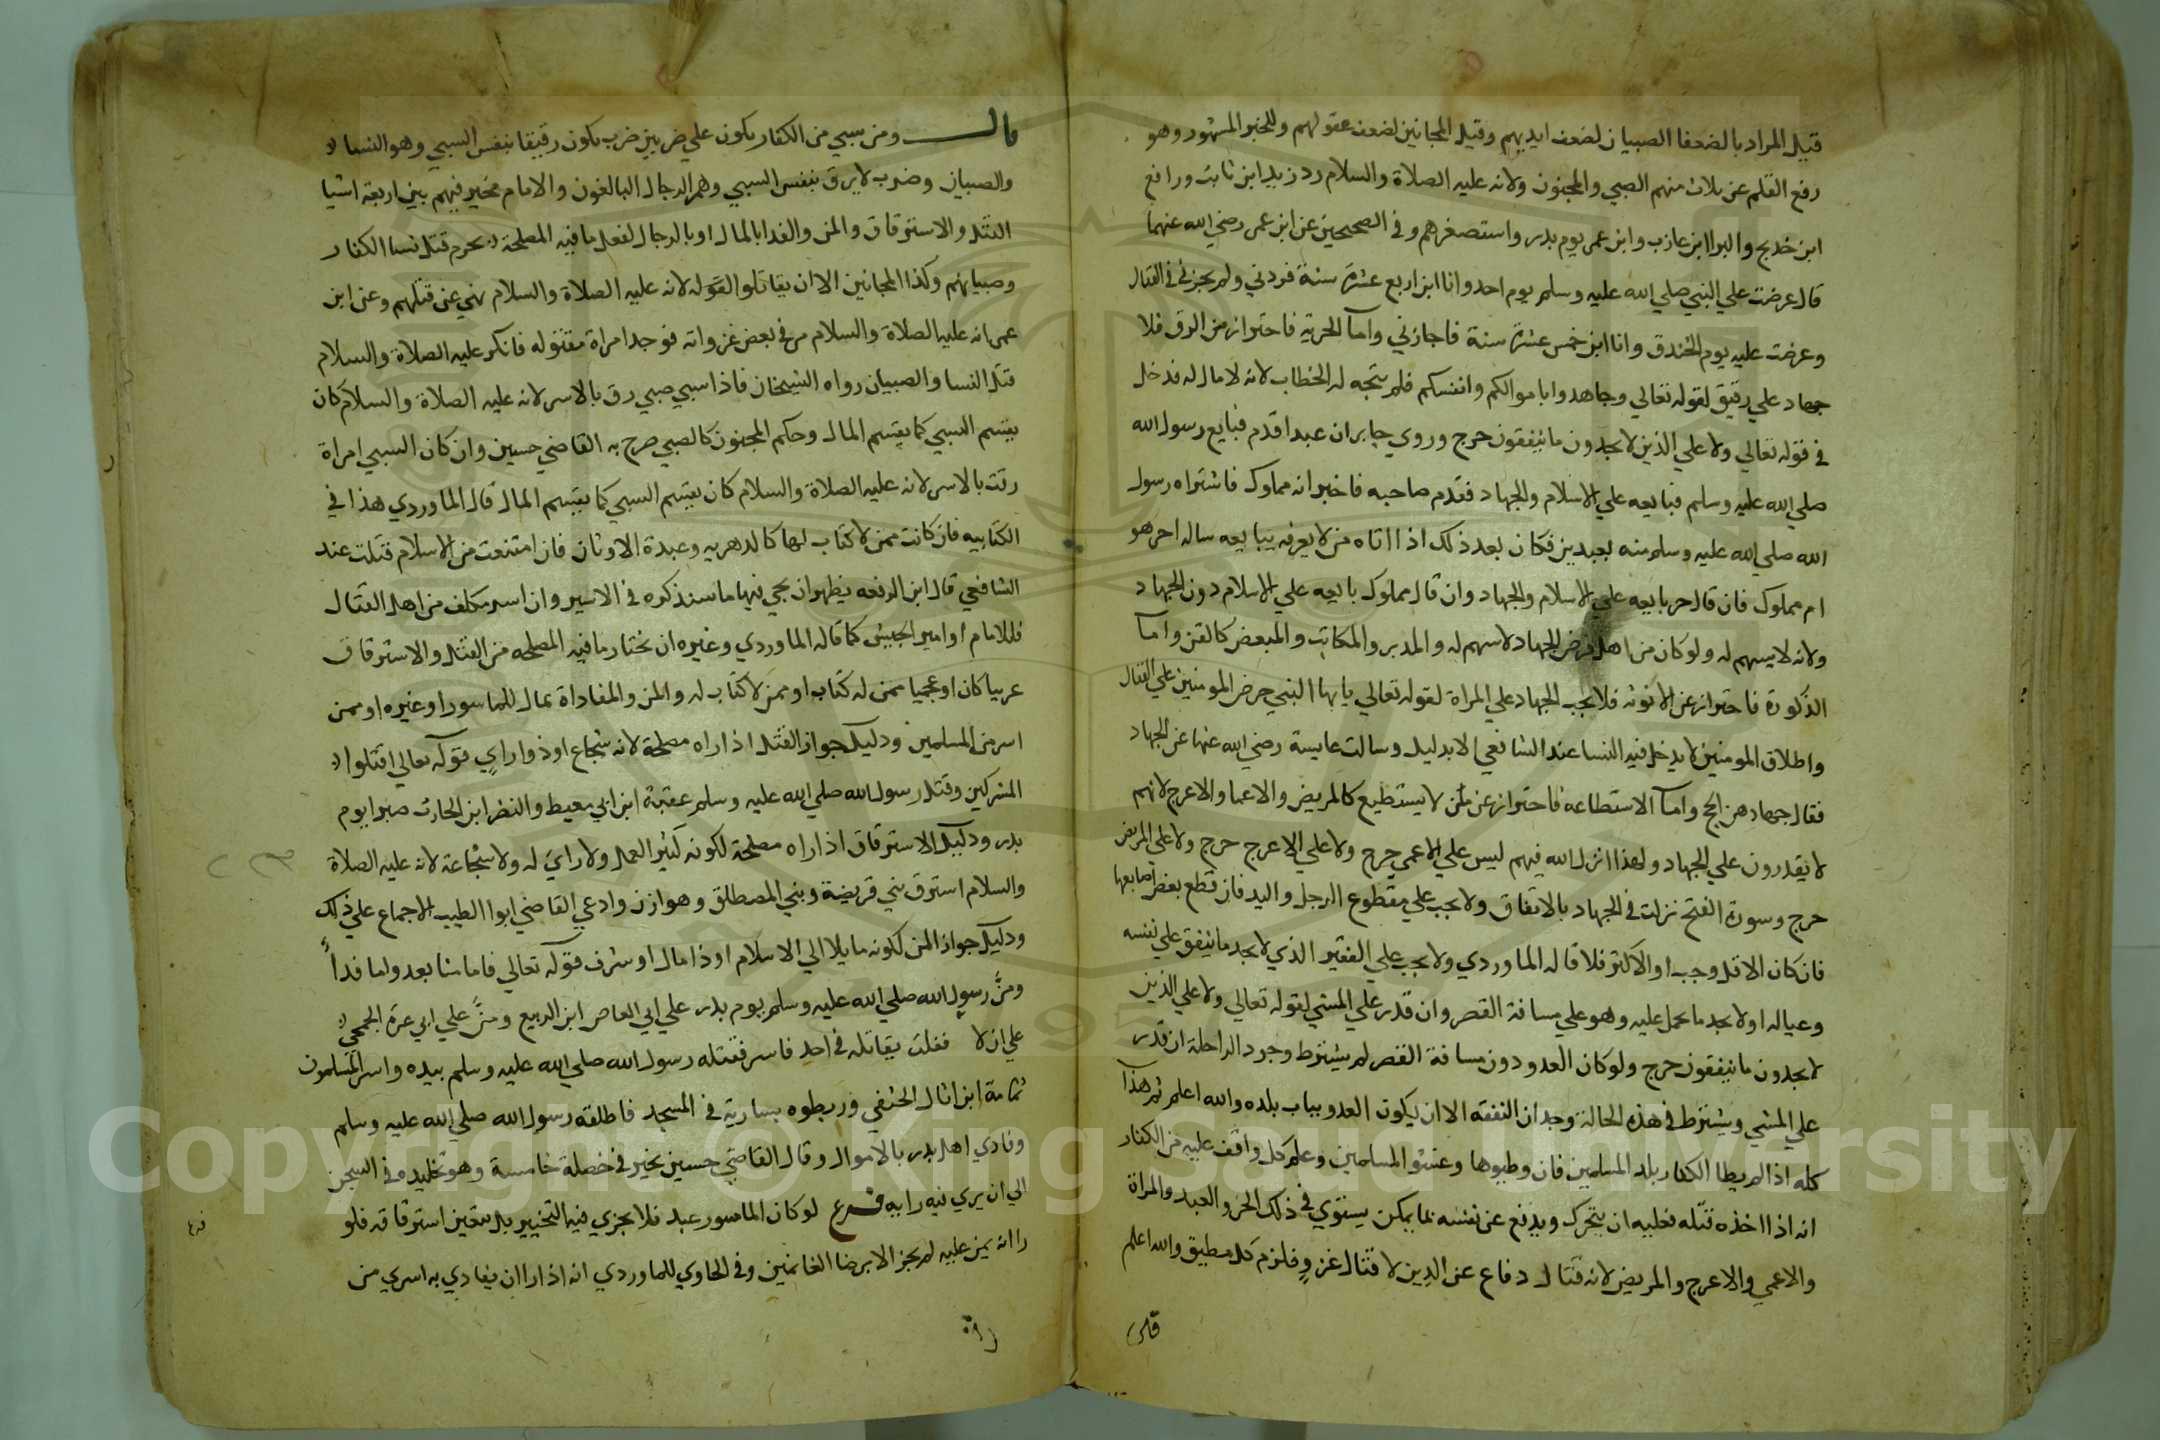 قيل المراد بالضعفا الصبيان لضعف ابديهم وقيل المجانين لضعف عقولهم وللخبر المشهور وهو
رفع القلم عن ثلاث منهم الصبي والمجنون ولانه عليه الصلاة والسلام رد زيد ابن ثابت ورافع
ابن خديج والبرا ابن عازب وابن عمر يوم بدر واستصغرهم وفي الصحيحين عن ابن عمر رضي الله عنهما
قال عرضت علي النبي صلي الله عليه وسلم يوم احد وانا ابن اربع عشرة سنة فردني ولم يجزني في القتال
وعرضت عليه يوم الخندق وانا ابن خمس عشرة سنة فاجازني واما الحرية فاحتراز من الرق فلا
جهاد علي رقيق لقوله تعالي وجاهدوا باموالكم وانفسكم فلم يتجه له الخطاب لانه لا مال له فدخل
في قوله تعالي ولا علي الذين لا يجدون ما ينفقون حرج وروي جابر ان عبدا قدم فبايع رسول الله
صلي الله عليه وسلم فبايعه علي الاسلام والجهاد فقدم صاحبه فاخبر انه مملوك فاشتراه رسول
الله صلي الله عليه وسلم منه بعبدين فكان بعد ذلك اذا اتاه من لا يعرفه يبايعه ساله احر هو
ام مملوك فان قال حر بايعه علي الاسلام والجهاد وان قال مملوك بايعه علي الاسلام دون الجهاد
ولانه لا يسهم له ولو كان من اهل فرض الجهاد لاسهم له والمدبر والمكاتب والمبعض كالقن واما
الذكورة فاحتراز عن الانوثه فلا يجب الجهاد علي المراة لقوله تعالي يايها النبي حرض المومنين علي القتال
واطلاق المومنين لا يدخل فيه النسا عند الشافعي الا بدليل وسالت عايشة رضي الله عنها عن الجهاد
فقال جهادهن الحج واما الاستطاعة فاحتراز عن من لا يستطيع كالمريض والاعما والاعرج لانهم
لا يقدرون علي الجهاد ولهذا انزل الله فيهم ليس علي الاعمي حرج ولا علي الاعرج حرج ولا علي المريض
حرج وسورة الفتح نزلت في الجهاد بالاتفاق ولا يجب علي مقطوع الرجل واليد فان قطع بعض اصابعها
فان كان الاقل وجب او الاكثر فلا قاله الماوردي ولا يجب علي الفقير الذي لا يجد ما ينفق علي نفسه
وعياله او لا يجد ما يحمل عليه وهو علي مسافة القصر وان قدر علي المشي لقوله تعالي ولا علي الذين
لا يجدون ما ينفقون حرج ولو كان العدو دون مسافة القصر لم يشترط وجود الراحلة ان قدر
علي المشي ويشترط في هذه الحالة وجدان النفقه الا ان يكون العدو بباب بلده والله اعلم ثم هذا
كله اذا لم يطا الكفار بلد المسلمين فان وطيوها وغشو المسلمين وعلم كل واقف عليه من الكفار
انه اذا اخذه قتله فعليه ان يتحرك ويدفع عن نفسه بما يمكن يستوي في ذلك الحر والعبد والمراة
والاعمي والاعرج والمريض لانه قتال دفاع عن الدين لا قتال غزو فلزم كل مطيق والله اعلم
قال
قال ومن سبي من الكفار يكون علي ضربين ضرب يكون رقيقا بنفس السبي وهو النسا
والصبيان وضرب لا يرق بنفس السبي وهم الرجال البالغون والامام مخير فيهم بين اربعة اشيا
القتل والاسترقاق والمن والفدا بالمال او بالرجال لفعل ما فيه المصلحة يحرم قتل نسا الكفار
وصبيانهم وكذا المجانين الا ان يقاتلوا القوله لانه عليه الصلاة والسلام نهي عن قتلهم وعن ابن
عمر انه عليه الصلاة والسلام مر في بعض غزواته فوجد امراة مقتوله فانكر عليه الصلاة والسلام
قتل النسا والصبيان رواه الشيخان فاذا سبي صبي رق بالاسر لانه عليه الصلاة والسلام كان
يقسم السبي كما يقسم المال وحكم المجنون كالصبي صرح به القاضي حسين وان كان السبي امراة
رقت بالاسر لانه عليه الصلاة والسلام كان يقسم السبي كما يقسم المال قال الماوردي هذا في
الكتابيه فان كانت ممن لا كتاب لها كالدهريه وعبدة الاوثان فان امتنعت من الاسلام قتلت عند
الشافعي قال ابن الرفعه يظهر ان يجي فيها ما سنذكره في الاسير وان اسر مكلف من اهل القتال
فللامام او امير الجيش كما قاله الماوردي وغيره ان يختار ما فيه المصلحه من القتل والاسترقاق
عربيا كان او عجميا ممن له كتاب او ممن لا كتاب له والمن والمفاداة بمال للماسور او غيره او ممن
اسر من المسلمين ودليل جواز القتل اذا راه مصلحة لانه شجاع او ذو راي قوله تعالي اقتلوا
المشركين وقتل رسول الله صلي الله عليه وسلم عقبة ابن ابي معيط والنضر ابن الحارث صبرا يوم
بدر ودليل الاسترقاق اذا راه مصلحة لكونه كثير العمل ولا راي له ولا شجاعة لانه عليه الصلاة
والسلام استرق بني قريضة وبني المصطلق وهوازن وادعي القاضي ابوا الطيب الاجماع علي ذلك
ودليل جواز المن لكونه مايلا الي الاسلام او ذا مال او شرف قوله تعالي فاما منا بعد واما فداً
ومنَّ رسول الله صلي الله عليه وسلم يوم بدر علي ابي العاص ابن الربيع ومنَّ علي ابي عزة الجمحي
علي ان لا يقاتله في احد فاسر فقتله رسول الله صلي الله عليه وسلم بيده واسر المسلمون
ثمامة ابن اثال الحنفي وربطوه بسارية في المسجد فاطلقه رسول الله صلي الله عليه وسلم
وفادي اهل بدر بالاموال وقال القاضي حسين يخير في خصلة خامسة وهو تخليده في السجن
الي ان يري فيه رايه فرع لو كان الماسور عبد فلا يجزي فيه التخيير بل يتعين استرقاقه فلو
راانه يمن عليه لم يجز الا برضا الغانمين وفي الحاوي للماوردي انه اذا راان يفادي به اسري من
Copyright © King Saud University